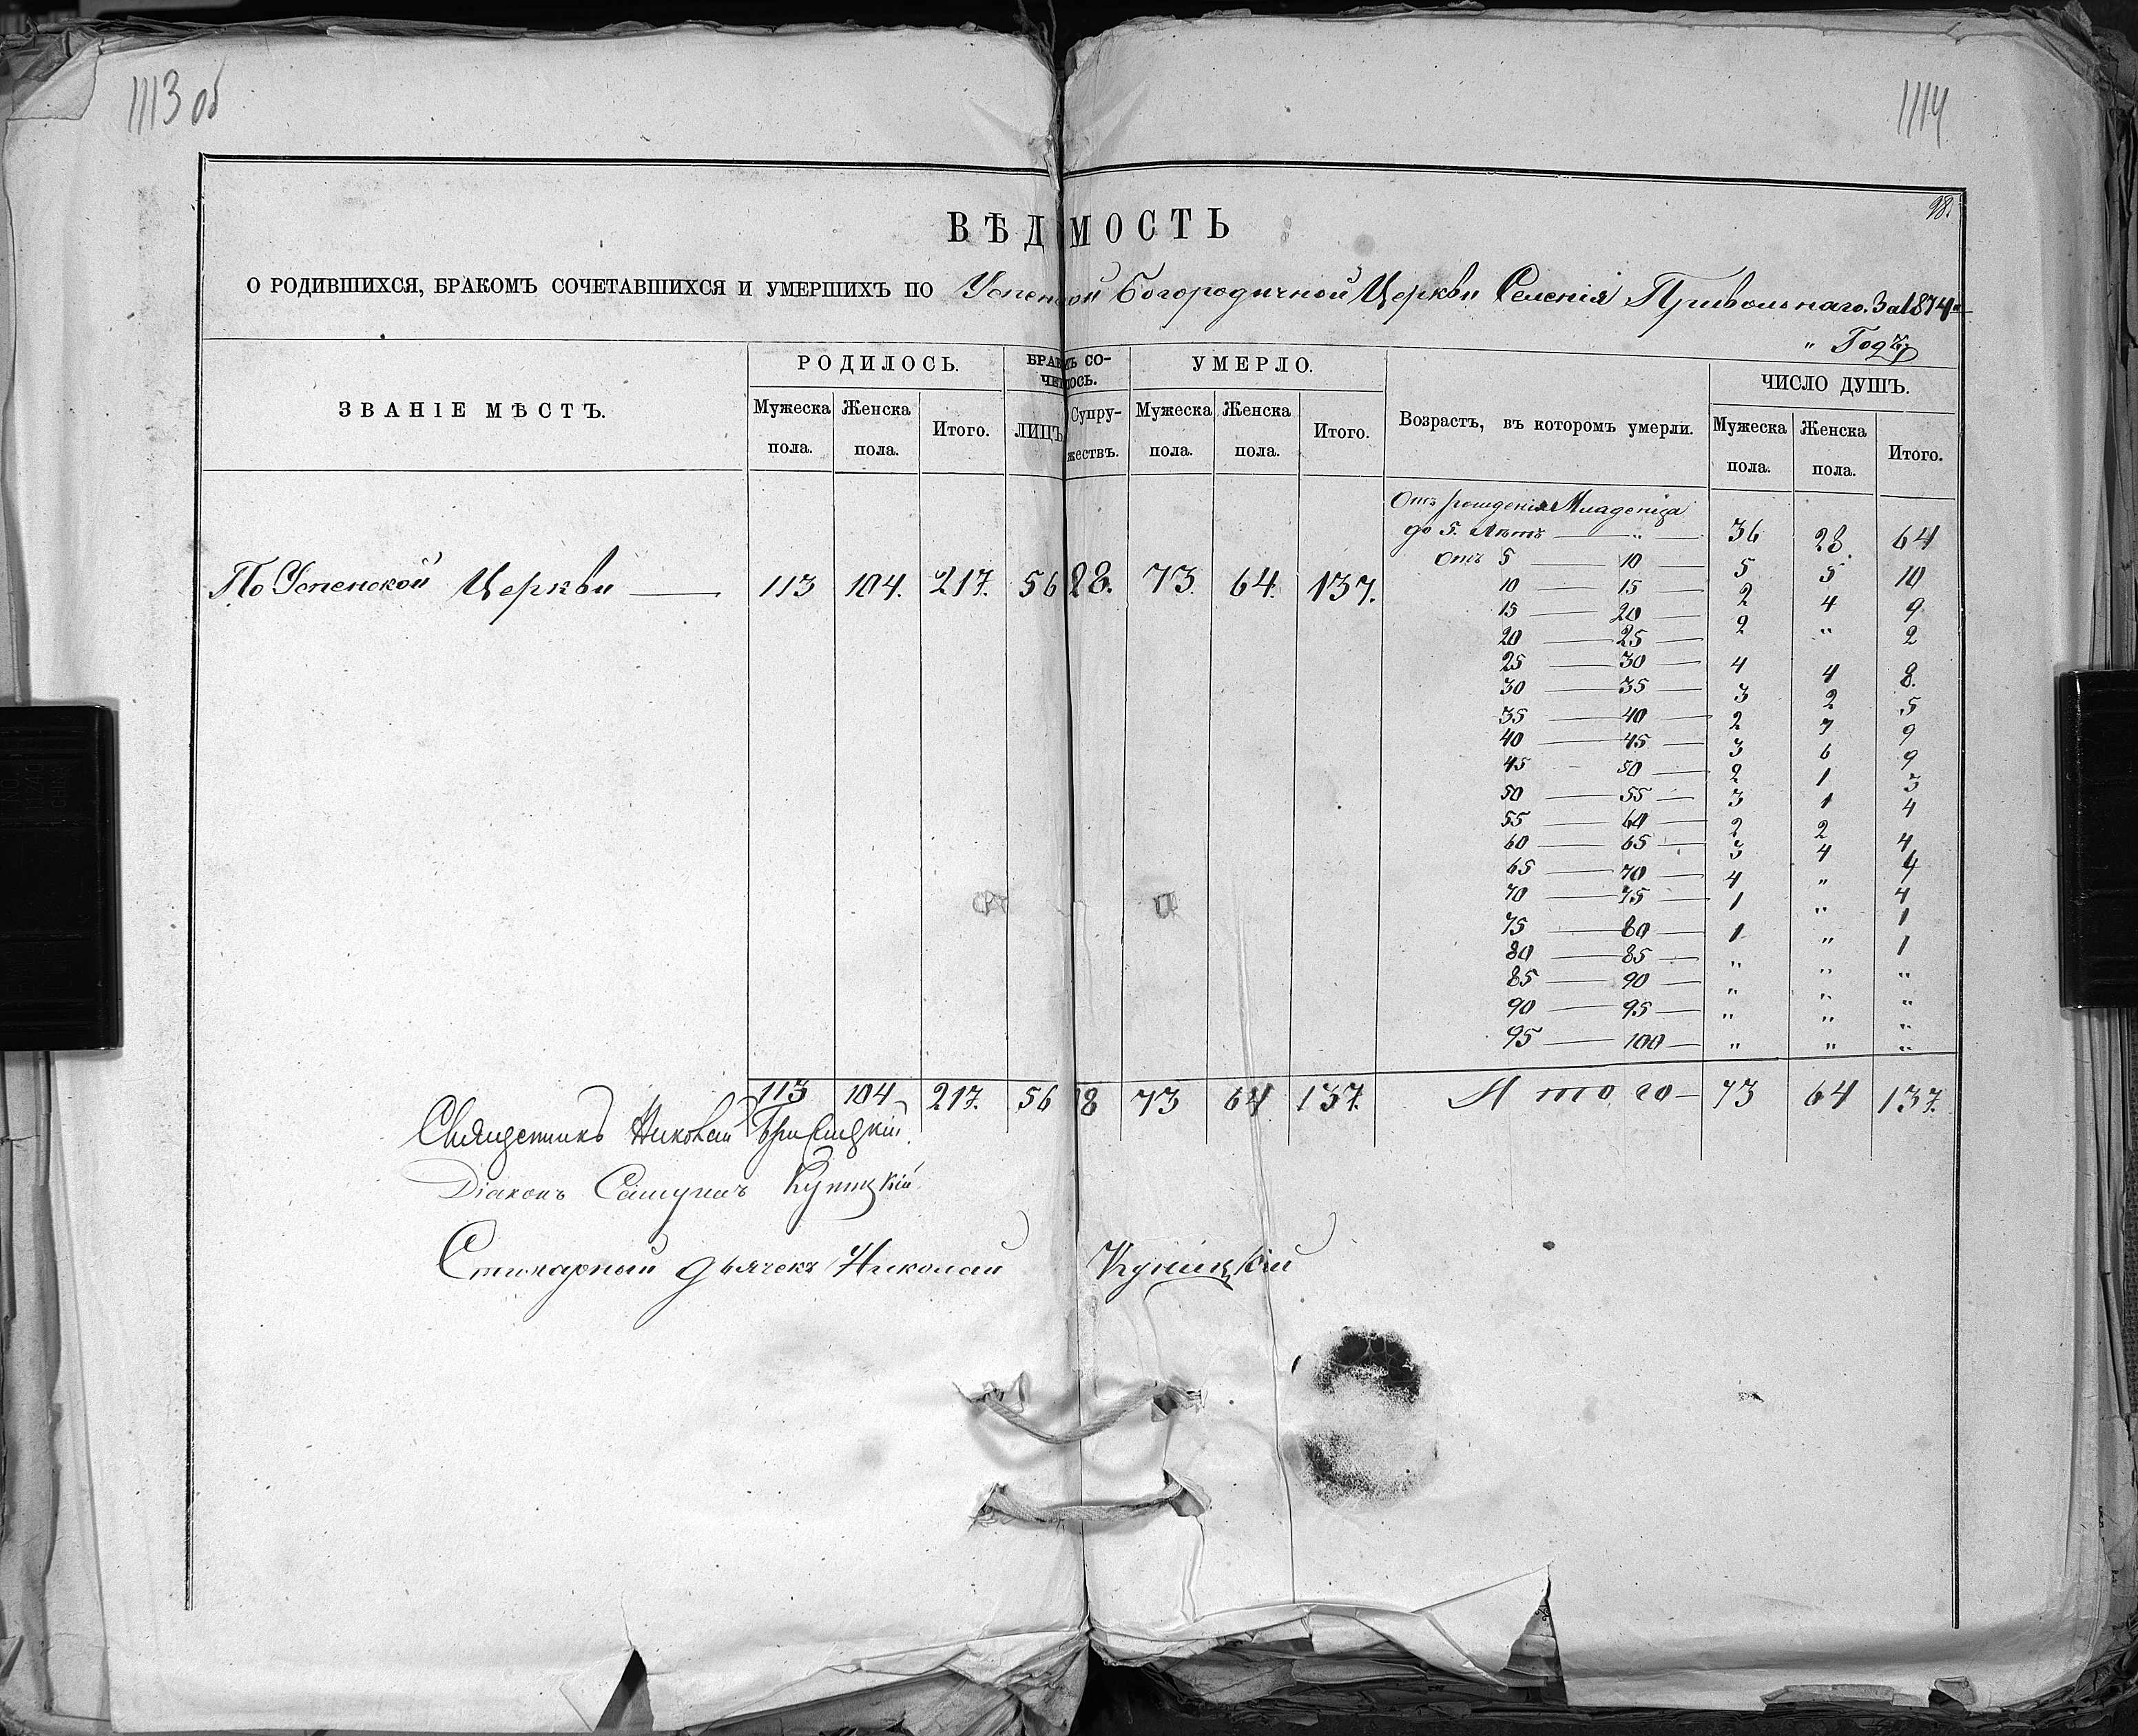 1113 об
1114
98.
ВѢДОМОСТЬ
О РОДИВШИХСЯ, БРАКОМЪ СОЧЕТАВШИХСЯ И УМЕРШИХЪ ПО Успенской Богородичной Церкви Селенія Привольнаго. За 1874й
„ Годъ
ЗВАНІЕ МѢСТЪ. РОДИЛОСЬ. БРАКОМЪ СО- УМЕРЛО. Возрастъ, въ которомъ умерли. ЧИСЛО ДУШЪ.
ЧЕТАЛОСЬ.
Мужеска Женска Итого. ЛИЦЪ Супру- Мужеска Женска Итого. Мужеска Женска Итого.
пола. пола. жествъ. пола. пола. пола. пола.
Отъ рожденія Младенца
до 5. Лѣтъ — „ — 36 28. 64
По Успенской Церкви — 113 104. 217. 56 28. 73. 64. 137.
Отъ 5 — 10 — 5 5 10
10 — 15 — 2 4 9
15 — 20 — 2 „ 2
20 — 25 —
25 — 30 — 4 4 8.
30 — 35 3 2 5
35 — 40 — 2 7 9
40 — 45 — 3 6 9
45 - 50 — 2 1 3
50 — 55 — 3 1 4
55 — 60 — 2 2 4
60 — 65 — 3 4 4
65 — 70 — 4 „ 4
70 — 75 — 1 „ 1
75 — 80 — 1 „ 1
80 — 85 — „ „ „
85 — 90 — „ „ „
90 — 95 — „ „ „
95 — 100 — „ „ „
113 104 217. 56 28 73 64 137. Итого — 73 64 137.
Священникъ Николай
Діаконъ
Стихарный дьячекъ Николай Куницкій